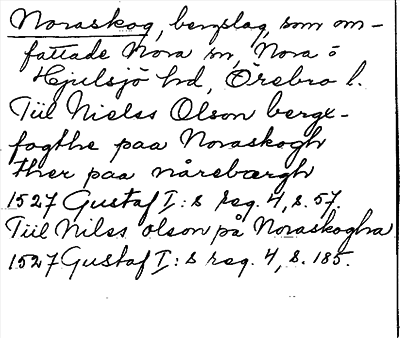 Noraskog, bergslag, som om-
fattade Nora sn, Nora o
Hjulsjö hd, Örebro l.
Tiil Nielss Olson bergx-
fogthe paa Noraskogh
ther paa nårebærgh
1527 Gustaf I:s reg. 4, s. 57.
Tiil Nilss olson på Noraskogha
1527 Gustaf I:s reg. 4, s. 185.